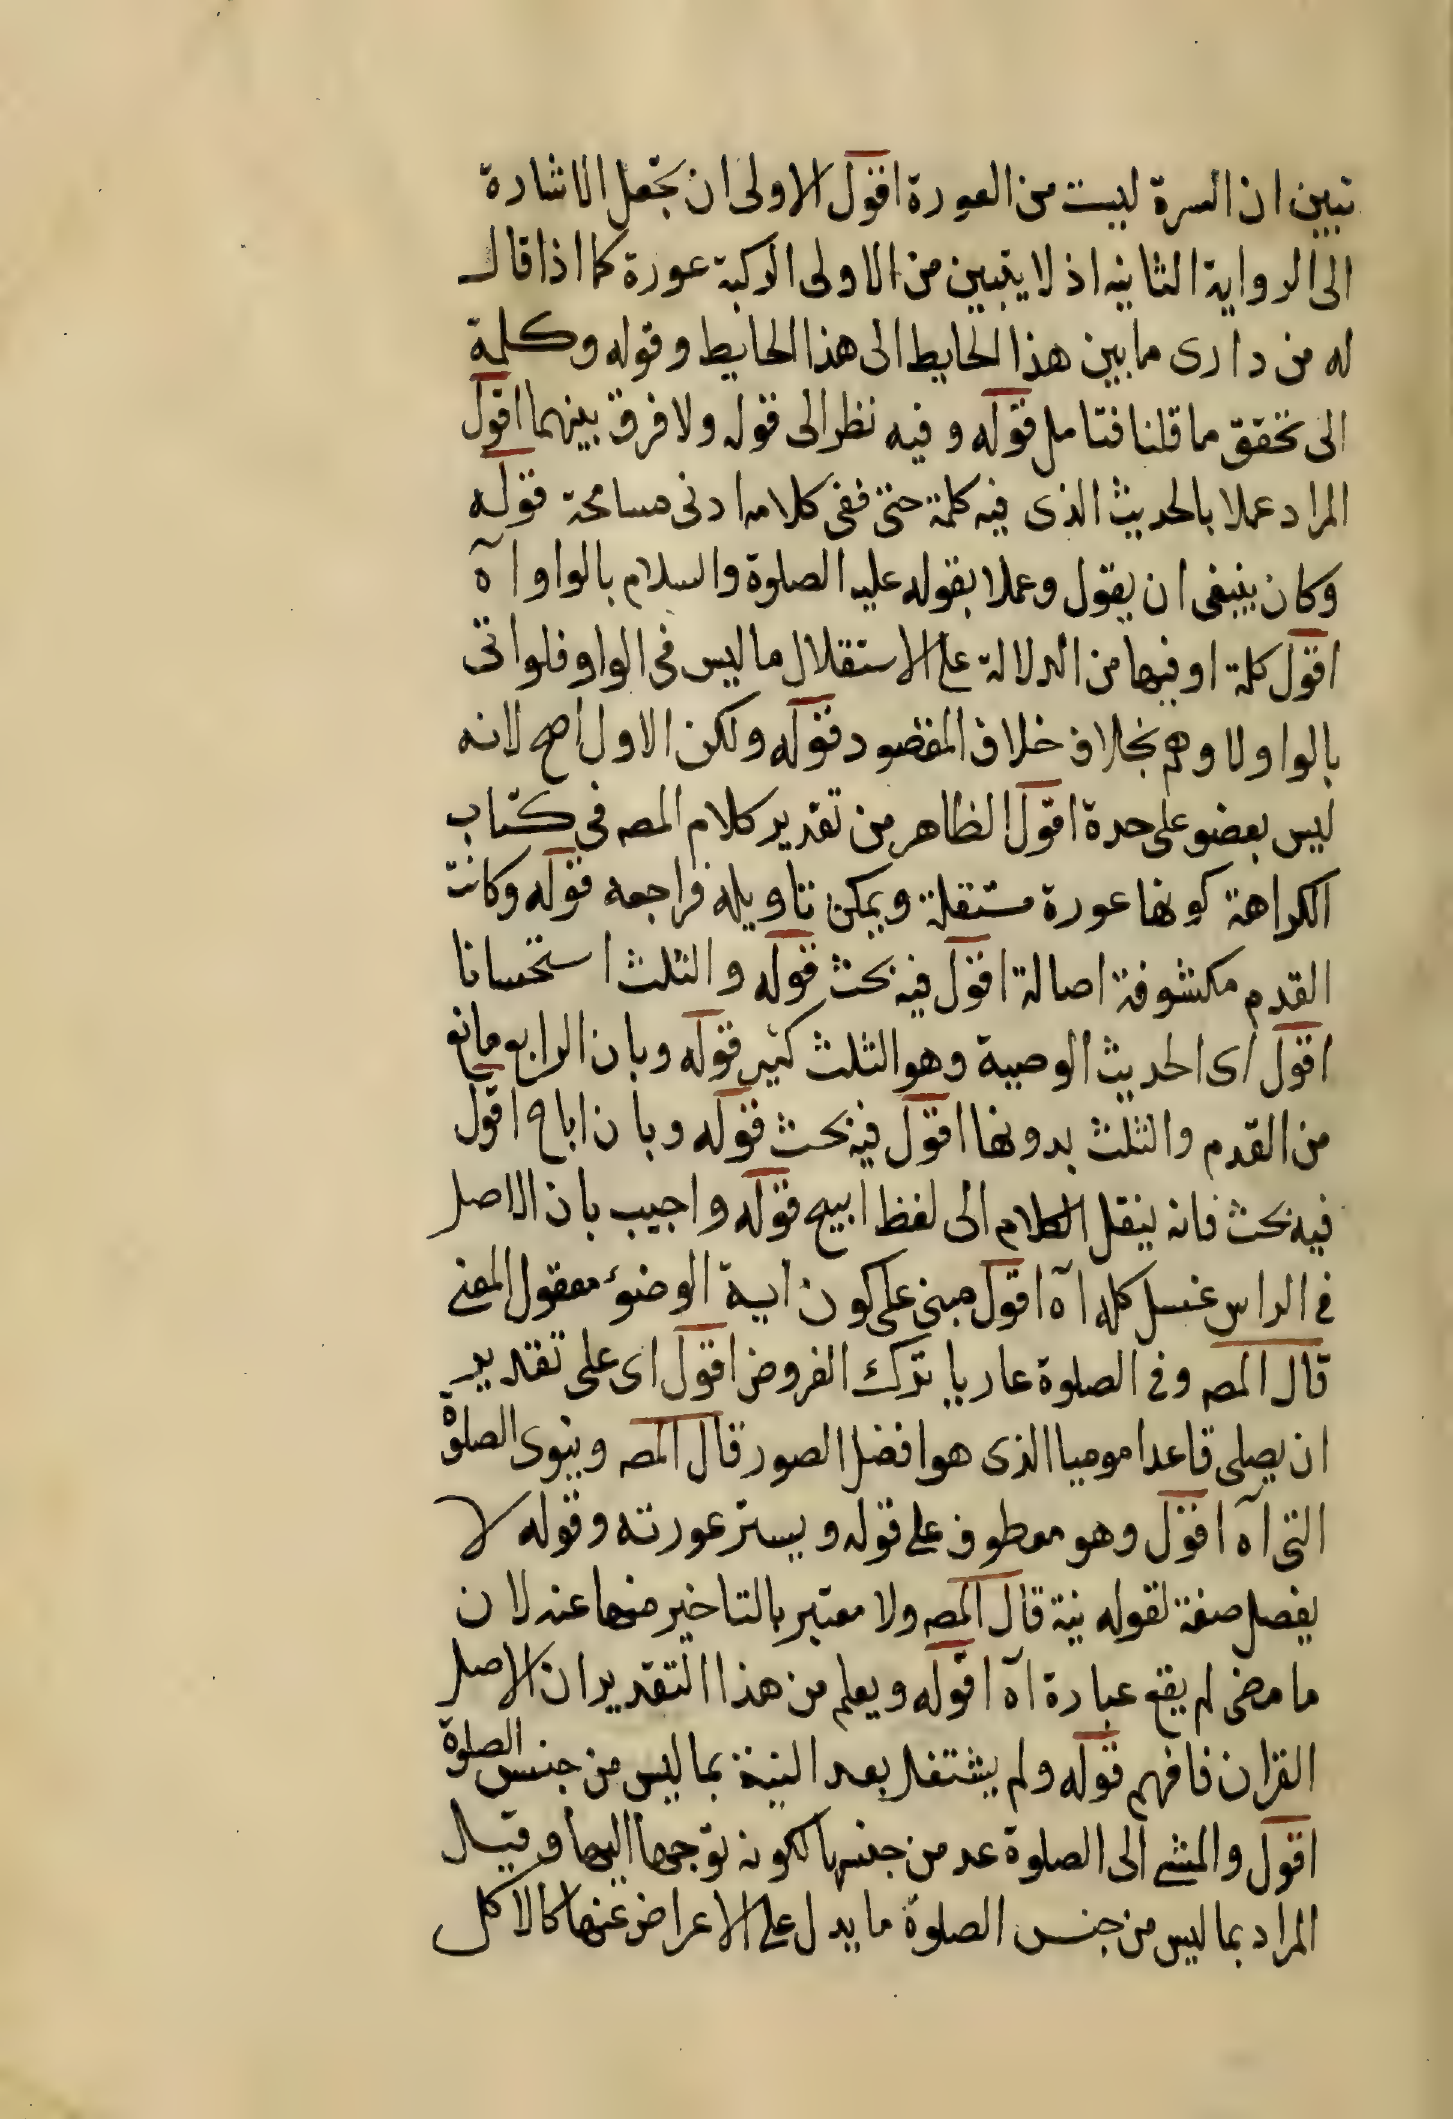 تبين ان السرة ليست من العورة اقول الاولى ان تجعل الاشارة
الى الرواية الثانيه اذ لا يتبين من الاولى الركبة عورة كما اذا قال
له من دارى ما بين هذا الحايط الى هذا الحايط وقوله وكلمة
الى تحقق ما قلنا فتامل قوله وفيه نظر الى قوله ولا فرق بينهما اقول
المراد عملا بالحديث الذى فيه كلمة حتى ففى كلامه ادنى مسامحة قوله
وكان ينبغى ان يقول وعملا بقوله عليه الصلوة والسلام بالواو آه
اقول كلمة او فيها من الدلالة على الاستقلال ما ليس فى الواو فلو اتى
بالواو لاوهم بخلاف خلاف المقصود قوله ولكن الاول اصح لانه
ليس بعضو على حدة اقول الظاهر من تقدير كلام المصه فى كتاب
الكراهة كونها عورة مستقلة ويمكن تاويله فراجعه قوله وكانت
القدم مكشوفة اصالة اقول فيه بحث قوله والثلث استحسانا
اقول اى الحديث الوصية وهو الثلث كثير قوله وبان الرابع مانع
من القدم والثلث بدونها اقول فيه بحث قوله وبان اباح اقول
فيه بحث فانه ينقل الكلام الى لفظ ابيح قوله واجيب بان الاصل
فى الراس غسل كله آه اقول مبنى على كون اية الوضوء معقول المعنى
قال المصه وفى الصلوة عاريا ترك الفروض اقول اى على تقدير
ان يصلى قاعدا موميا الذى هو افضل الصور قال المصه وينوى الصلوة
التى آه اقول وهو معطوف على قوله ويستر عورته وقوله لا
يفصل صفة لقوله نية قال المصه ولا معتبر بالتاخير منها عنه لان
ما مضى لم يقع عبادة آه اقوله ويعلم من هذا التقدير ان الاصل
القران فافهم قوله ولم يشتغل بعد النية بما ليس من جنس الصلوة
اقول والمشى الى الصلوة عد من جنسها لكونه توجها اليها وقيل
المراد بما ليس من جنس الصلوة ما يدل على الاعراض عنها كالاكل